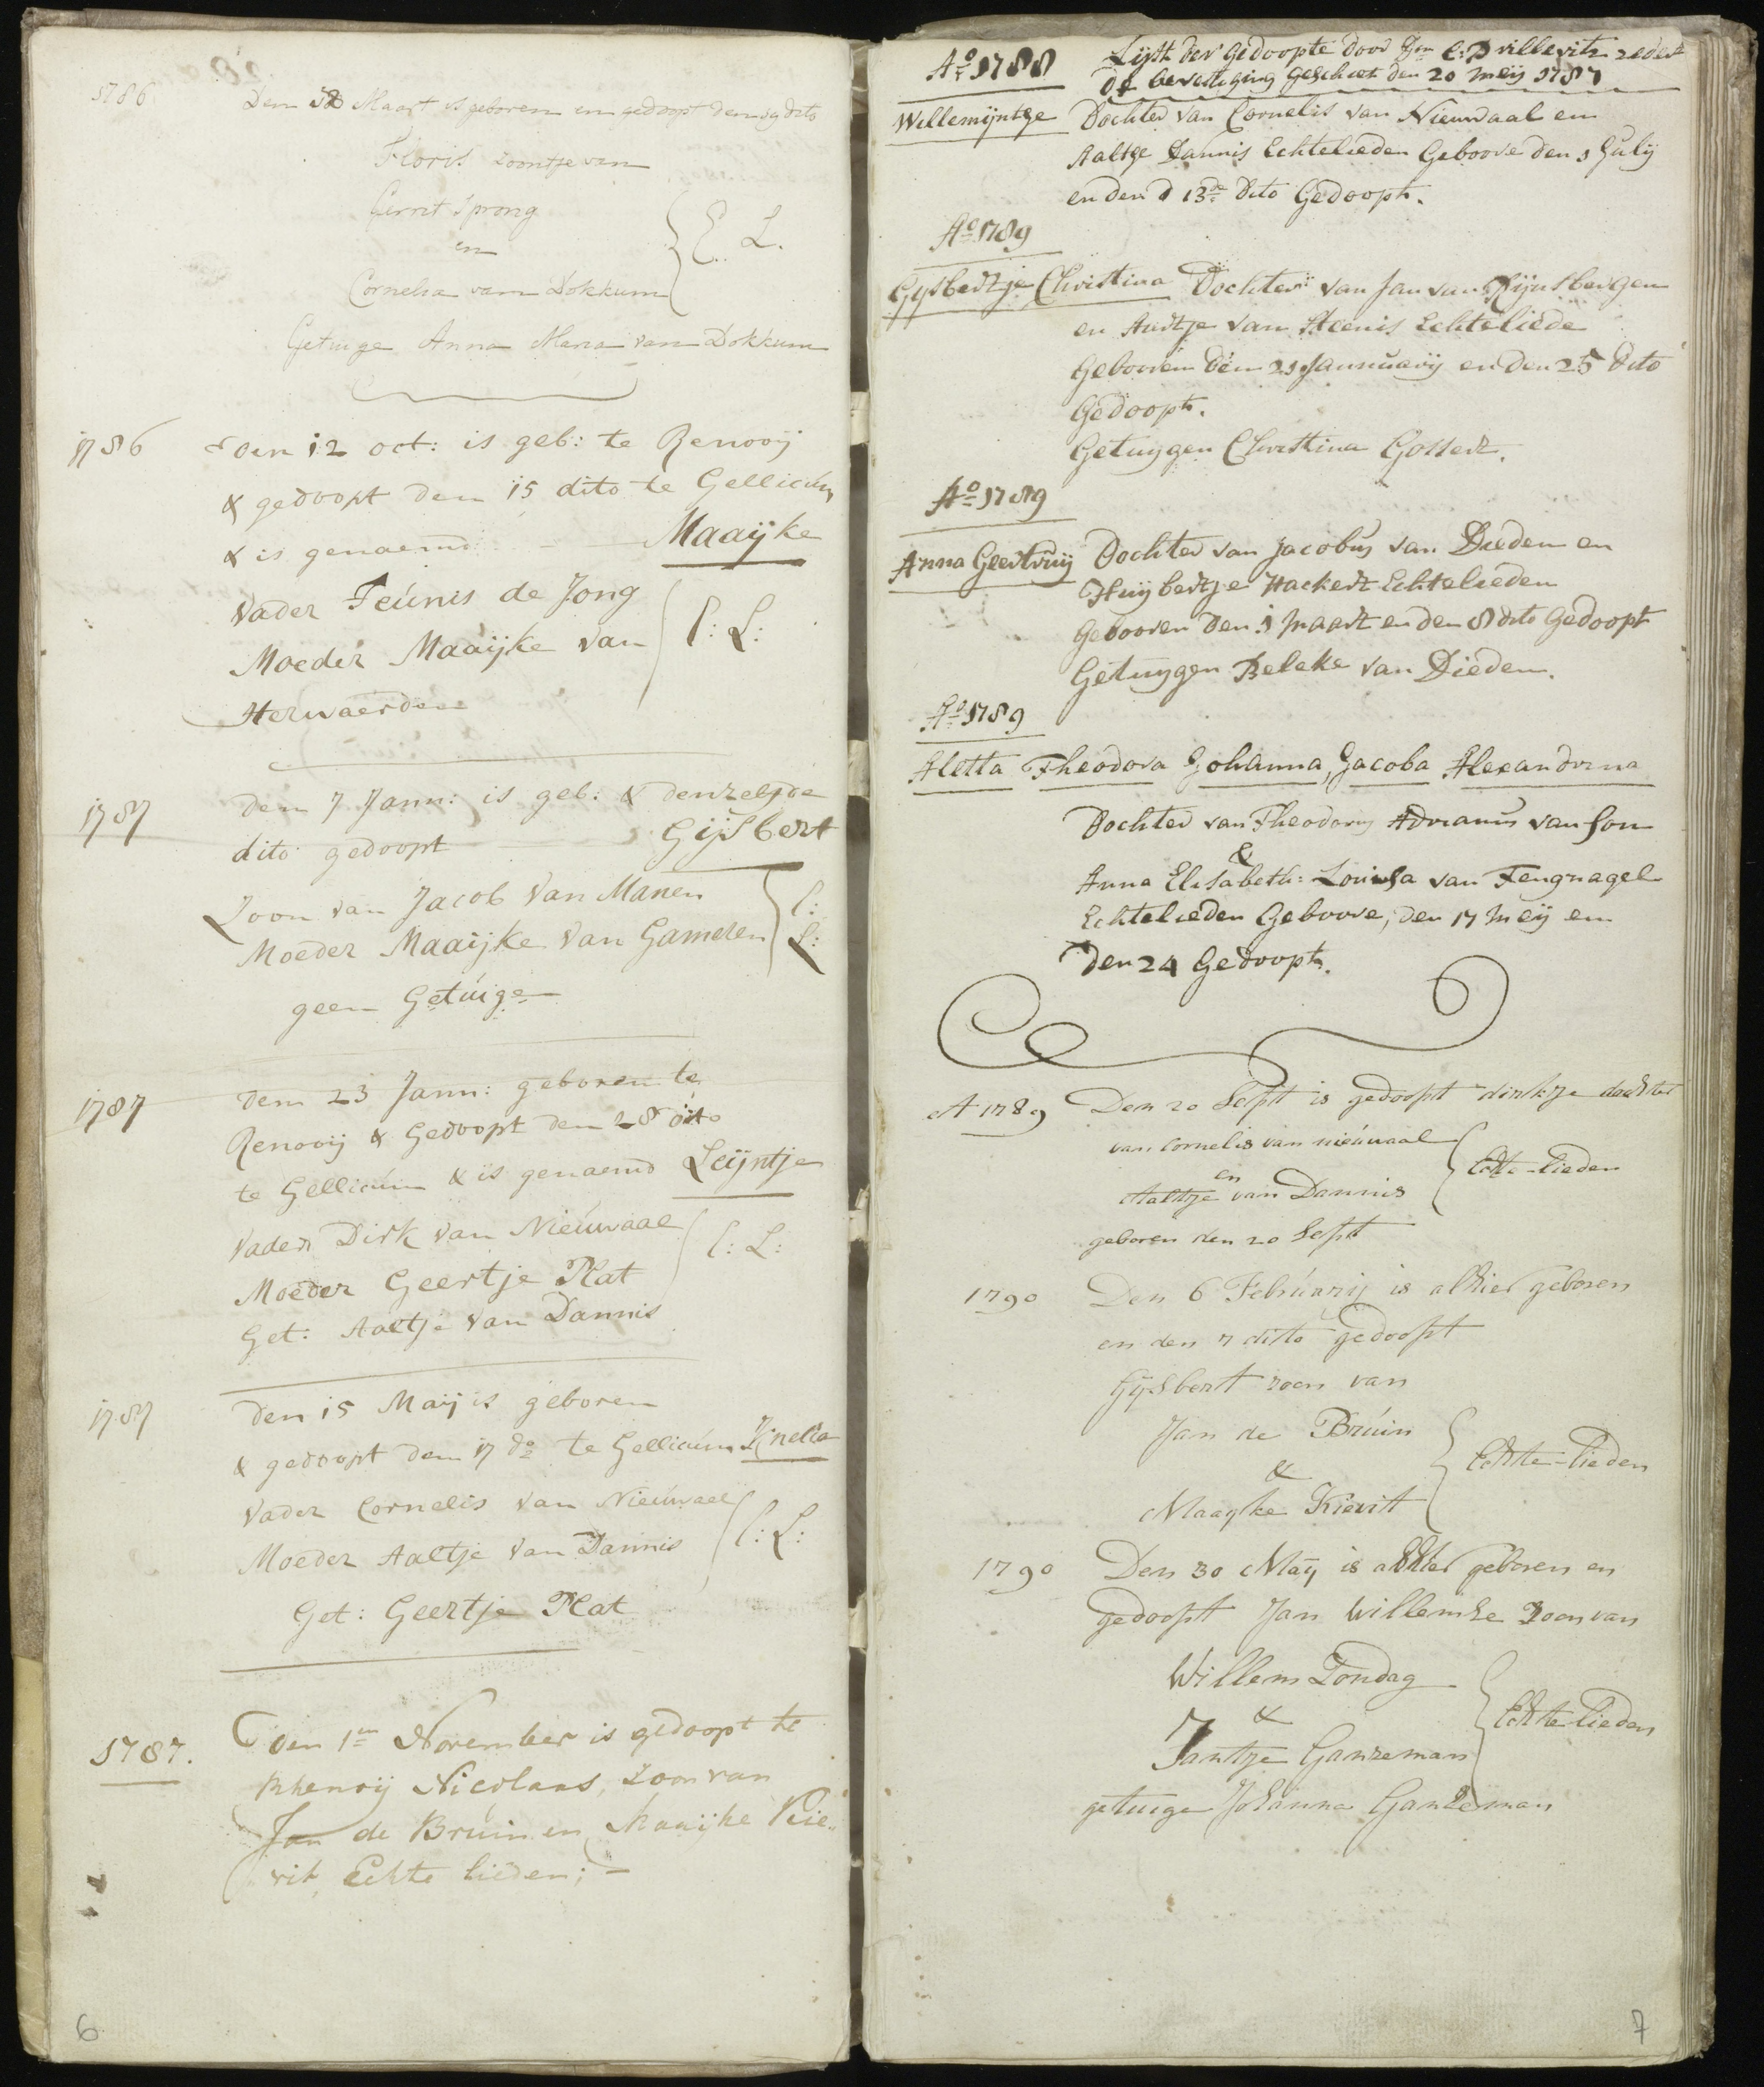 1786
Den Maart is geboren en gedoopt den 19 dito
Floris zoontje van
Gerrit Sprong
en
E. L.
Cornelia van Dokkum
Getuige Anna Maria van Dokkum
1786
den 12 oct: is geb: te Renooij
& gedoopt den 15 dito te Gellicúm
& is genaemd Maaijke
Vader Teúnis de Jong
Moeder Maaijke van
E: L:
Herwaerden
1787
den 7 Jann: is geb: & denzelfde
dito gedoopt Gijsbert
Zoon van Jacob van Manen
Moeder Maaijke van Gameren
E:
L:
geen Getúige
1787
den 23 Jann: geboren te
Renooij & Gedoopt den 28 dito
te Gellicúm & is genaemd Leijntje
Vader Dirk van Nieúwaal
Moeder Geertje Plat
E: L:
Get: Aaltje van Dannis
1787
den 15 Maij is geboren
& gedoopt den 17 do te Gellicúm Knelia
Vader Cornelis van Nieúwael
Moeder Aaltje van Dannis
E: L:
Get: Geertje Plat
1787.
Den 1en November is gedoopt te
Rhenoij Nicolaas, Zoon van
Jan de Brúin en Maaijke Kie-
vit Echte lieden; —
6
Ao 1788
Lijst der Gedoopte door Dm C: D villevitz zedert
de bevestiging Geschiet den 20 Meij 1787
Willemijntge Dochter van Cornelis van Nieuwaal en
Aaltge Dannis Echtelieden Geboore den 9 July
en den 13de dito Gedoopt.
Ao 1789
Gijsbertje Christina Dochter van Jan van Rijnsbergen
en Aartje van Steenis Echteliede
Gebooren den 21 Jannuarij en den 25 dito
Gedoopt.
Getuygen Christina Gossert.
Ao 1789
Anna Geertruij Dochter van Jacobus van Dieden en
Huijbertje Hackert Echtelieden
Gebooren den 1 Maart en den 8 dito Gedoopt
Getuygen Beleke van Dieden.
Ao 1789
Aletta Theodora Johanna, Jacoba Alexandrina
Dochter van Theodorus Adrianus van Son
&
Anna Elisabeth: Louisa van Tengnagel
Echtelieden Geboore, den 17 Meij en
den 24 Gedoopt.
A 1789
Den 20 Sept is gedoopt dirkje dochter
van Cornelis van nieúwaal
en
Echte-lieden
Aaltje van Dannis
geboren den 20 Sept
1790
Den 6 Febrúarij is alhier geboren
en den 7 ditto gedoopt
Gijsbert zoon van
Jan de Brúin
&
Echte-lieden
Maayke Kievit
1790
Den 30 Maij is alhier geboren en
gedoopt Jan Willemse Zoon van
Willem Tondag
&
Echte lieden
Jantje Ganzeman
getuige Johanna Ganzeman
7